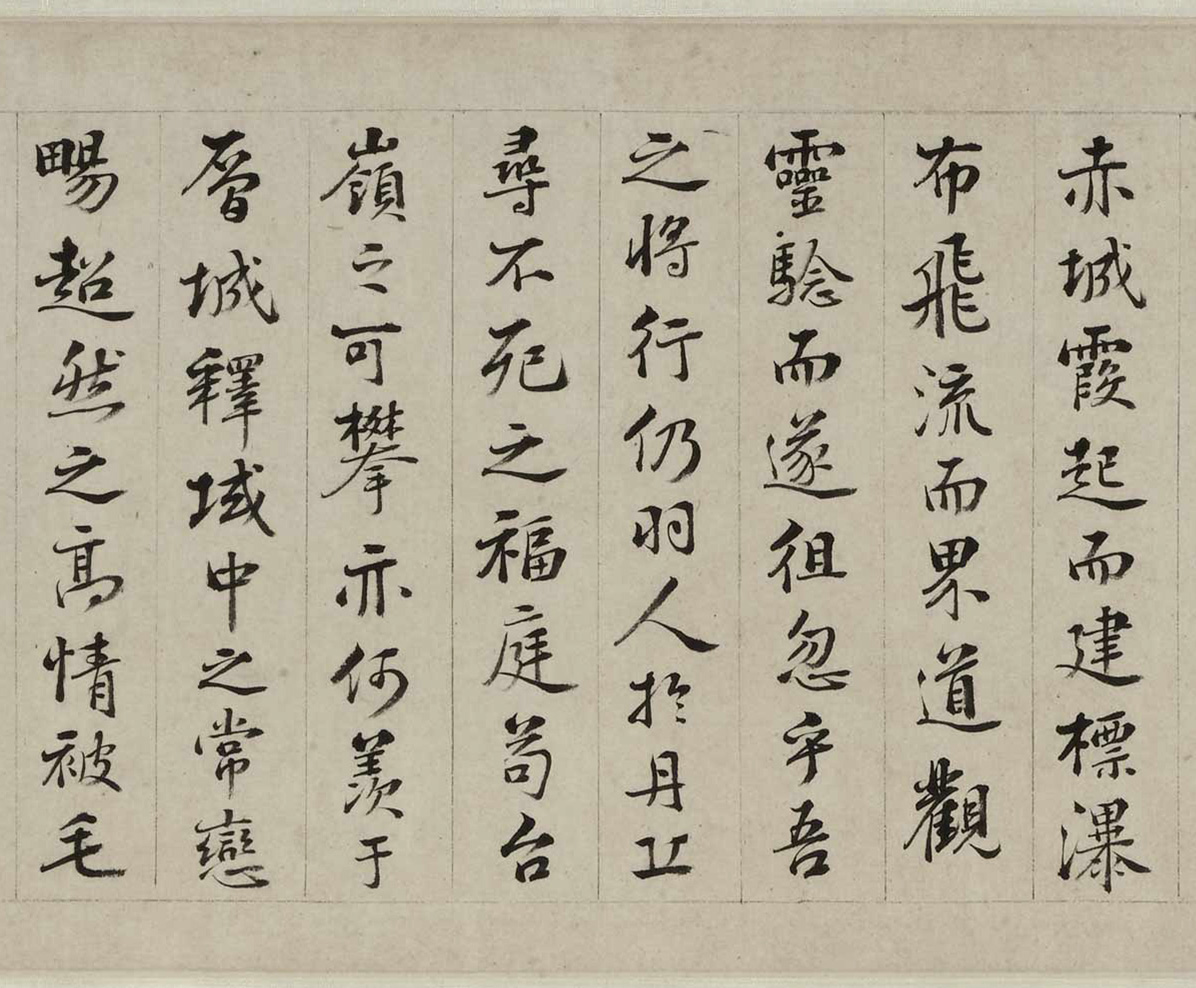 赤城霞起而建標瀑
布飛流而界道觀
靈驗而遂徂忽乎吾
之將行仍羽人於丹丘
尋不死之福庭苟台
嶺之可攀亦何羨于
層城釋域中之常戀
暢超然之高情被毛